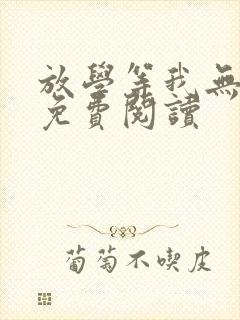 放學等我無
免費閱讀
葡萄不喫皮